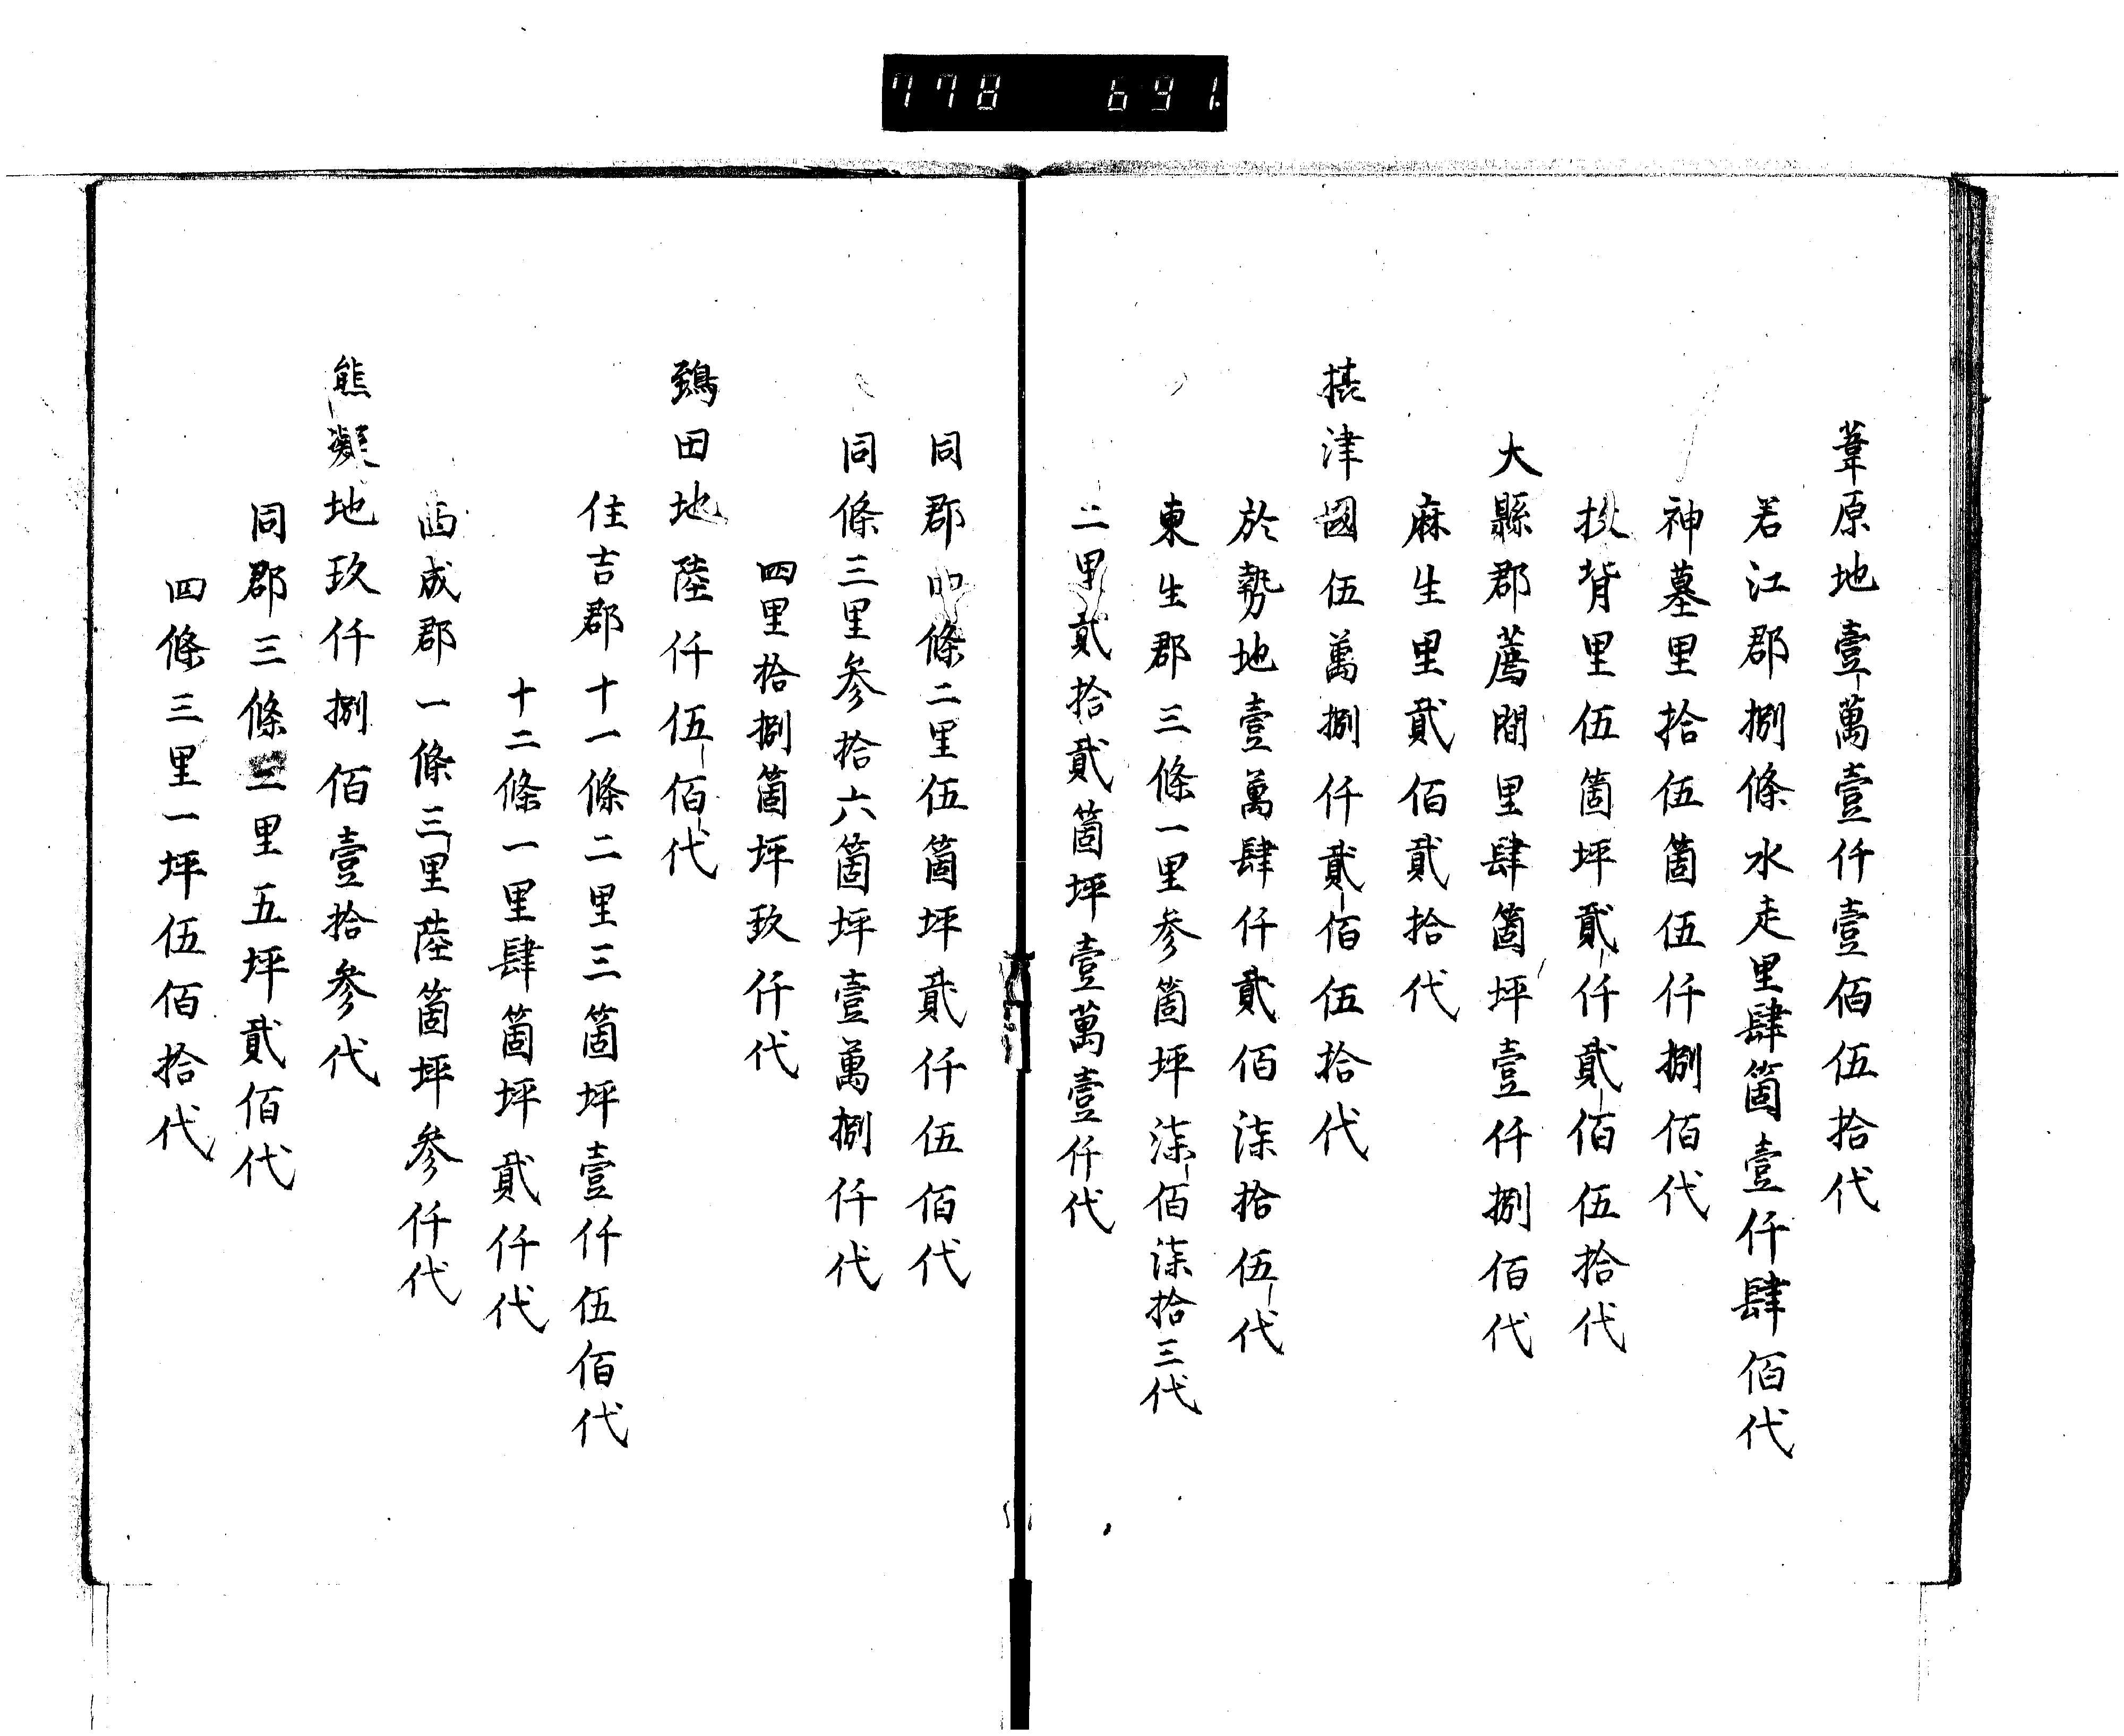 778 691.
葦原地壹萬壹仟壹佰伍拾代
若江郡捌條水走里肆箇壹仟肆佰代
神墓里拾伍箇伍仟捌佰代
扠背里伍箇坪貳仟貳佰伍拾代
大縣郡薦間里肆箇坪壹仟捌佰代
麻生里貳佰貳拾代
攝津國伍萬捌仟貳佰伍拾代
於勢地壹萬肆仟貳佰柒拾伍代
東生郡三條一里参箇坪柒佰柒拾三代
二里貳拾貳箇坪壹萬壹仟代
同郡四條二里伍箇坪貳仟伍佰代
同條三里参拾六箇坪壹萬捌仟代
四里拾捌箇坪玖仟代
鵄田地陸仟伍佰代
住吉郡十一條二里三箇坪壹仟伍佰代
十二條一里肆箇坪貳仟代
西成郡一條三里陸箇坪参仟代
熊凝地玖仟捌佰壹拾参代
同郡三條二里五坪貳佰代
四條三里一坪伍佰拾代